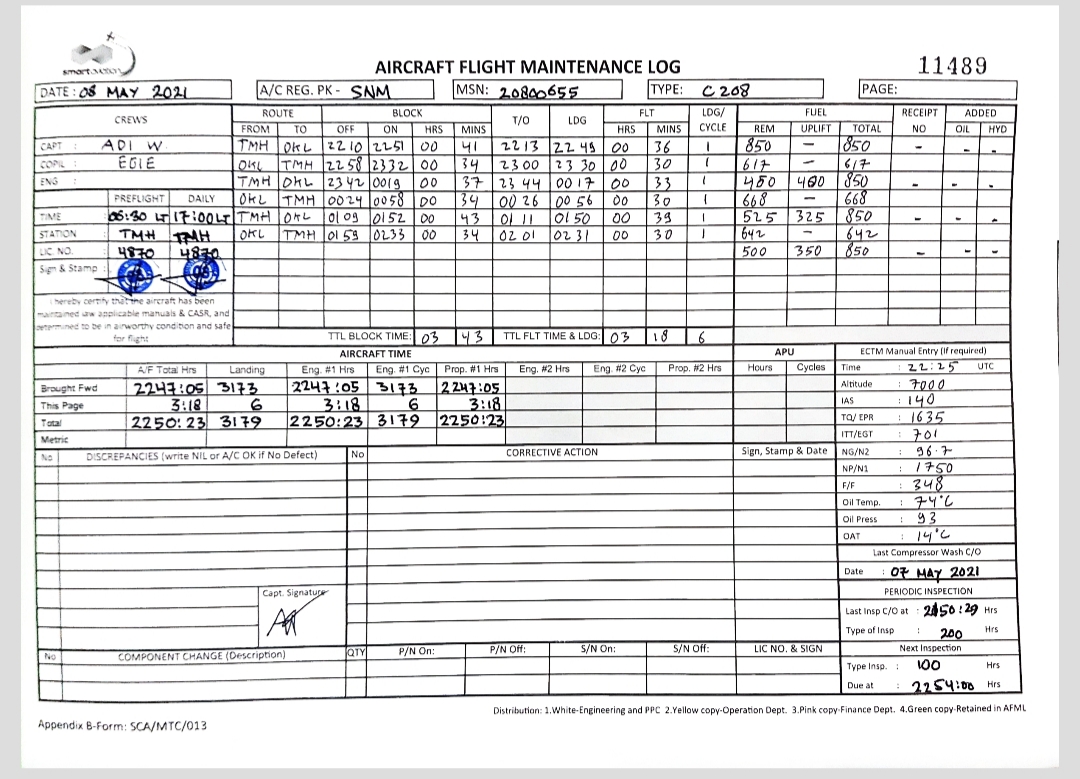 smartaviation
AIRCRAFT FLIGHT MAINTENANCE LOG 11489
DATE : 08 MAY 2021 A/C REG. PK - SNM MSN: 20800655 TYPE: C 208 PAGE:
CREWS ROUTE BLOCK T/O LDG FLT LDG/ CYCLE FUEL RECEIPT NO ADDED
FROM TO OFF ON HRS MINS HRS MINS REM UPLIFT TOTAL OIL HYD
CAPT : ADI W TMH OKL 2210 2251 00 41 2213 2249 00 36 1 850 - 850 - - -
COPIL : EGIE OKL TMH 2258 2332 00 34 2300 2330 00 30 1 617 - 617
ENG : TMH OKL 2342 0019 00 37 2344 0017 00 33 1 450 400 850 - - -
PREFLIGHT DAILY OKL TMH 0024 0058 00 34 0026 0056 00 30 1 668 - 668
TIME 05:30 LT 17:00 LT TMH OKL 0109 0152 00 43 0111 0150 00 39 1 525 325 850 - - -
STATION TMH TMH OKL TMH 0159 0233 00 34 0201 0231 00 30 1 642 - 642
LIC. NO. 4870 4870 500 350 850 - - -
Sign & Stamp :
I hereby certify that the aircraft has been
maintained iaw applicable manuals & CASR, and
determined to be in airworthy condition and safe
for flight
TTL BLOCK TIME: 03 43 TTL FLT TIME & LDG: 03 18 6
AIRCRAFT TIME APU ECTM Manual Entry (If required)
A/F Total Hrs Landing Eng. #1 Hrs Eng. #1 Cyc Prop. #1 Hrs Eng. #2 Hrs Eng. #2 Cyc Prop. #2 Hrs Hours Cycles Time : 22:25 UTC
Brought Fwd 2247:05 3173 2247:05 3173 2247:05 Altitude : 7000
This Page 3:18 6 3:18 6 3:18 IAS : 140
Total 2250:23 3179 2250:23 3179 2250:23 TQ/ EPR : 1635
Metric ITT/EGT : 701
No DISCREPANCIES (write NIL or A/C OK if No Defect) No CORRECTIVE ACTION Sign, Stamp & Date NG/N2 : 96.7
NP/N1 : 1750
F/F : 348
Oil Temp. : 74°C
Oil Press : 93
OAT : 14°C
Last Compressor Wash C/O
Date : 07 MAY 2021
PERIODIC INSPECTION
Capt. Signature
Last Insp C/O at : 2150:29 Hrs
Type of Insp : 200 Hrs
No COMPONENT CHANGE (Description) QTY P/N On: P/N Off: S/N On: S/N Off: LIC NO. & SIGN Next Inspection
Type Insp. : 100 Hrs
Due at : 2254:00 Hrs
Distribution: 1.White-Engineering and PPC 2.Yellow copy-Operation Dept. 3.Pink copy-Finance Dept. 4.Green copy-Retained in AFML
Appendix B-Form: SCA/MTC/013